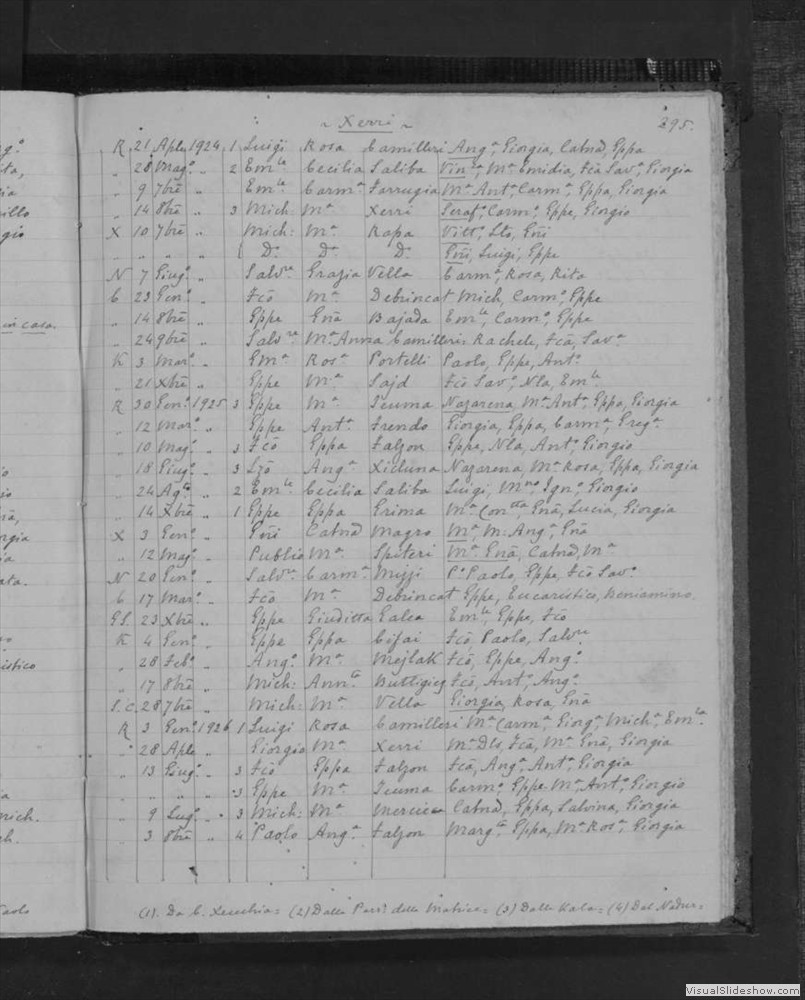 ~ Xerri ~ 295.
R. 21 Aple 1924 1 Luigi Rosa Camilleri Angª, Giorgia, Catnd, Eppa
„ 28 Magº „ 2 Emle Cecilia Saliba Vinª, Mª Emidia, Fcã Savª, Giorgia
„ 9 7bre „ Emle Carmª Farrugia Mª Antª, Carmª, Eppa, Giorgia
„ 14 8bre „ 3 Mich: Mª Xerri Serafº, Carmº, Eppe, Giorgio
X 10 7bre „ Mich: Mª Rapa Vittº, Eñi
„ „ „ „ Dº Dª Dº Eñi, Luigi, Eppe
N 7 Giugº „ Salvre Grazia Vella Carmª, Rosa, Rita
C 23 Genº „ Fcõ Mª Debrincat Mich, Carmº, Eppe
„ 14 8bre „ Eppe Enã Bajada Emle, Carmº, Eppe
„ 24 9bre „ Salvre Mª Anna Camilleri Rachele, Fcã, Savª
K 3 Marº „ Emª Rosª Portelli Paolo, Eppe, Antº
„ 21 Xbre „ Eppe Mª Sajd Fcõ Savº, Nla, Emle
R 30 Genº 1925 3 Eppe Mª Teuma Nazarena, Mª Antª, Eppa, Giorgia
„ 12 Marº „ Eppe Antª Frendo Giorgia, Eppa, Carmª, Gregª
„ 10 Magº „ 3 Fcõ Eppa Falzon Eppe, Nla, Antº, Giorgio
„ 18 Giugº „ 3 Lzõ Angª Xicluna Nazarena, Mª Rosa, Eppa, Giorgia
„ 24 Agto „ 2 Emle Cecilia Saliba Luigi, Mno, Ignº, Giorgio
„ 14 Xbre „ 1 Eppe Eppa Grima Mª Contta, Enã, Lucia, Giorgia
X 3 Genº „ Eñi Catnd Magro Mª, M: Angª, Enã
„ 12 Magº „ Publio Mª Spiteri Mª Enã, Catnd, Mª
N 20 Genº „ Salvre Carmª Mizzi Pº Paolo, Eppe, Fcõ Savº
C 17 Marº „ Fcõ Mª Debrincat Eppe, Eucaristico, Beniamino
GS. 23 Xbre „ Eppe Giuditta Galea Emle, Eppe, Fcõ
K 4 Genº „ Eppe Eppa Cifai Fcõ Paolo, Salvre
„ 28 Febº „ Angº Mª Mejlak Fcõ, Eppe, Angº
„ 17 8bre „ Mich: Annta Buttigieg Fcõ, Antº, Angº
S.C. 28 7bre „ Mich: Mª Vella Giorgia, Rosa, Enã
R 3 Genº 1926 1 Luigi Rosa Camilleri Mª Carmª, Giorgª, Michª, Emla
„ 28 Aple „ Giorgio Mª Xerri Mª Dls, Fcã, Mª Enã, Giorgia
„ 13 Giugº „ 3 Fcõ Eppa Falzon Fcã, Angª, Antª, Giorgia
„ „ „ „ 3 Eppe Mª Teuma Carmº, Eppe, Mª Antº, Giorgio
„ 9 Lugº „ 3 Mich: Mª Mercieca Catnd, Eppa, Salvina, Giorgia
„ 3 8bre „ 4 Paolo Angª Falzon Margta, Eppa, Mª Rosª, Giorgia
(1). Da C. Xeuchia= (2) Dalla Parr. della Matrice= (3) Dalla Kala= (4) Dal Nadur=
in casa.
VisualSlideshow.com